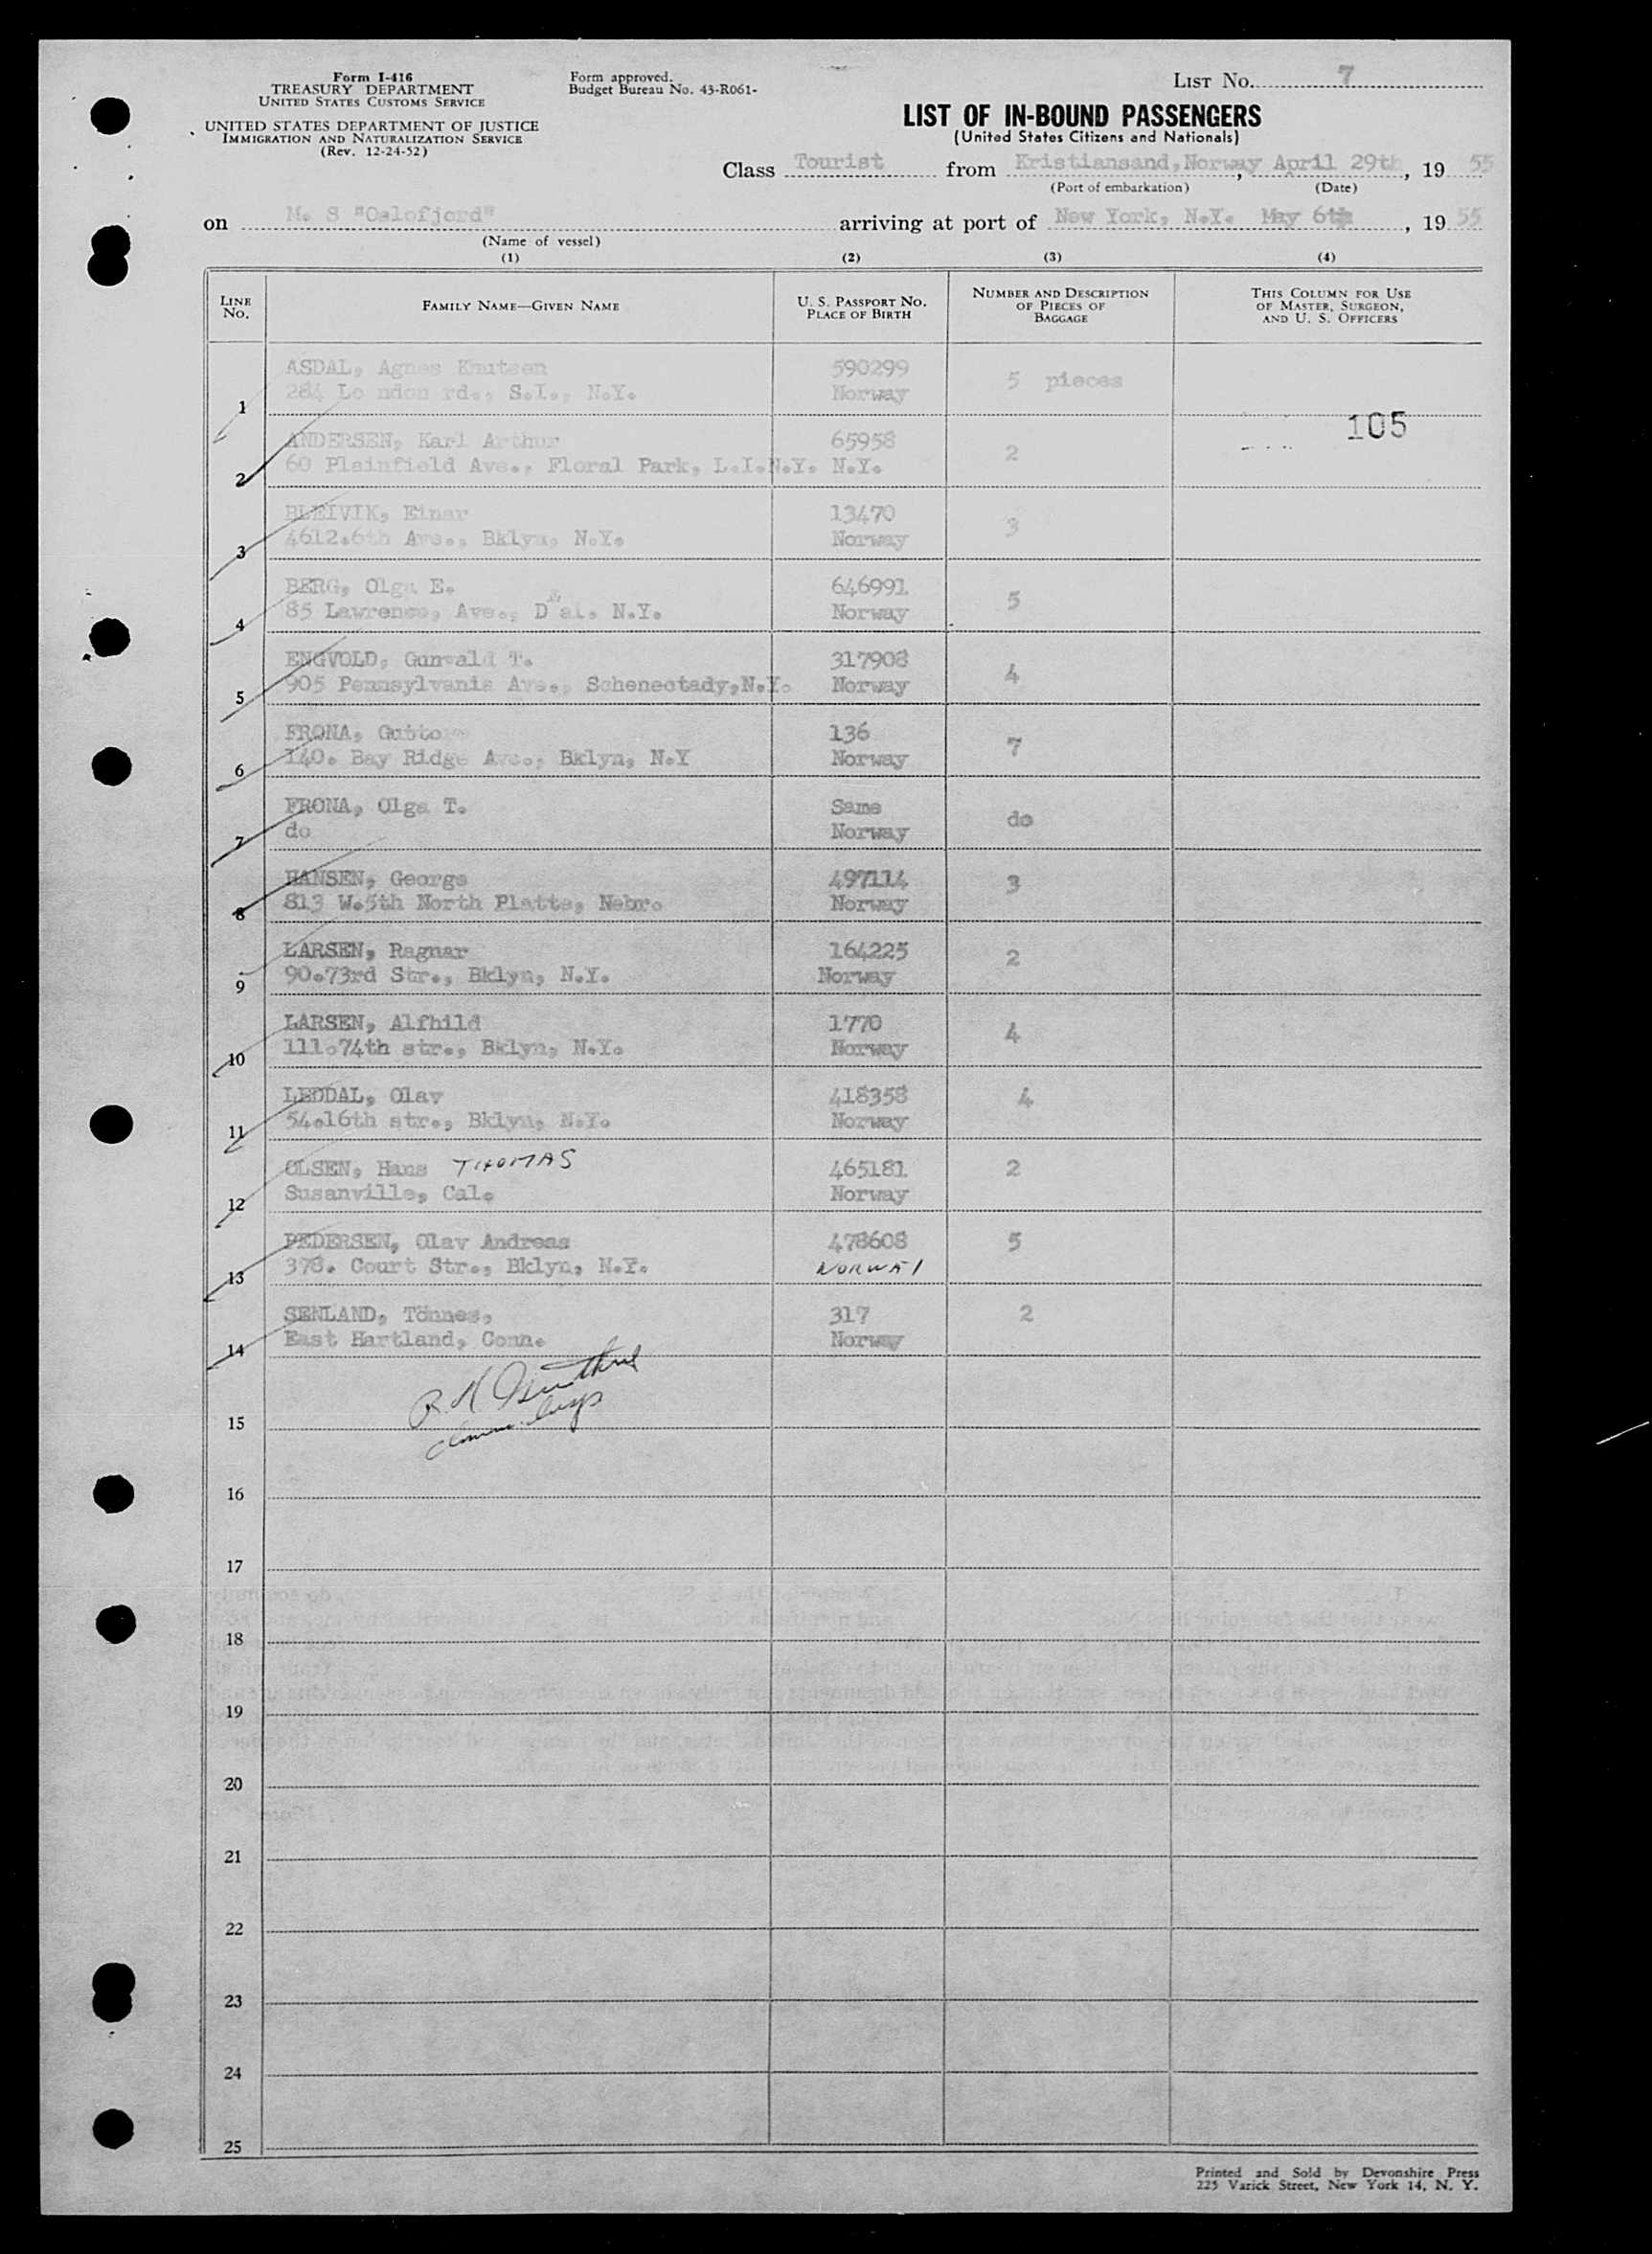 Form I-416
TREASURY DEPARTMENT
UNITED STATES CUSTOMS SERVICE
UNITED STATES DEPARTMENT OF JUSTICE
IMMIGRATION AND NATURALIZATION SERVICE
(Rev. 12-24-52)
Form approved.
Budget Bureau No. 43-R061-
LIST No. 7
LIST OF IN-BOUND PASSENGERS
(United States Citizens and Nationals)
Class Tourist from Kristiansand, Norway, April 29th, 19 55
(Port of embarkation) (Date)
on M. S "Oslofjord" arriving at port of New York, N.Y. May 6th, 19 55
(Name of vessel)
(1) (2) (3) (4)
LINE No. FAMILY NAME—GIVEN NAME U. S. PASSPORT NO. PLACE OF BIRTH NUMBER AND DESCRIPTION OF PIECES OF BAGGAGE THIS COLUMN FOR USE OF MASTER, SURGEON, AND U. S. OFFICERS
ASDAL, Agnes Knutsen 590299 5 pieces
1 284 Lo ndon rd., S.I., N.Y. Norway
105
ANDERSEN, Karl Arthur 65958 2
2 60 Plainfield Ave., Floral Park, L.I.N.Y. N.Y.
BLEIVIK, Einar 13470 3
3 4612.6th Ave., Bklyn, N.Y. Norway
BERG, Olga E. 646991 5
4 85 Lawrence, Ave., N.Y. Norway
ENGVOLD, Gunvald T. 317908 4
5 905 Pennsylvania Ave., Schenectady,N.Y. Norway
FRONA, 136 7
6 140. Bay Ridge Ave., Bklyn, N.Y Norway
FRONA, Olga T. Same do
7 do Norway
HANSEN, George 497114 3
8 813 W.5th North Platte, Nebr. Norway
LARSEN, Ragnar 164225 2
9 90.73rd Str., Bklyn, N.Y. Norway
LARSEN, Alfhild 1770 4
10 111.74th str., Bklyn, N.Y. Norway
LEDDAL, Olav 418358 4
11 54.16th str., Bklyn, N.Y. Norway
OLSEN, Hans THOMAS 465181 2
12 Susanville, Cal. Norway
PEDERSEN, Olav Andreas 478608 5
13 378. Court Str., Bklyn, N.Y. NORWAY
SENLAND, Tönnes, 317 2
14 East Hartland, Conn. Norway
15
16
17
18
19
20
21
22
23
24
25
Printed and Sold by Devonshire Press
225 Varick Street, New York 14, N. Y.